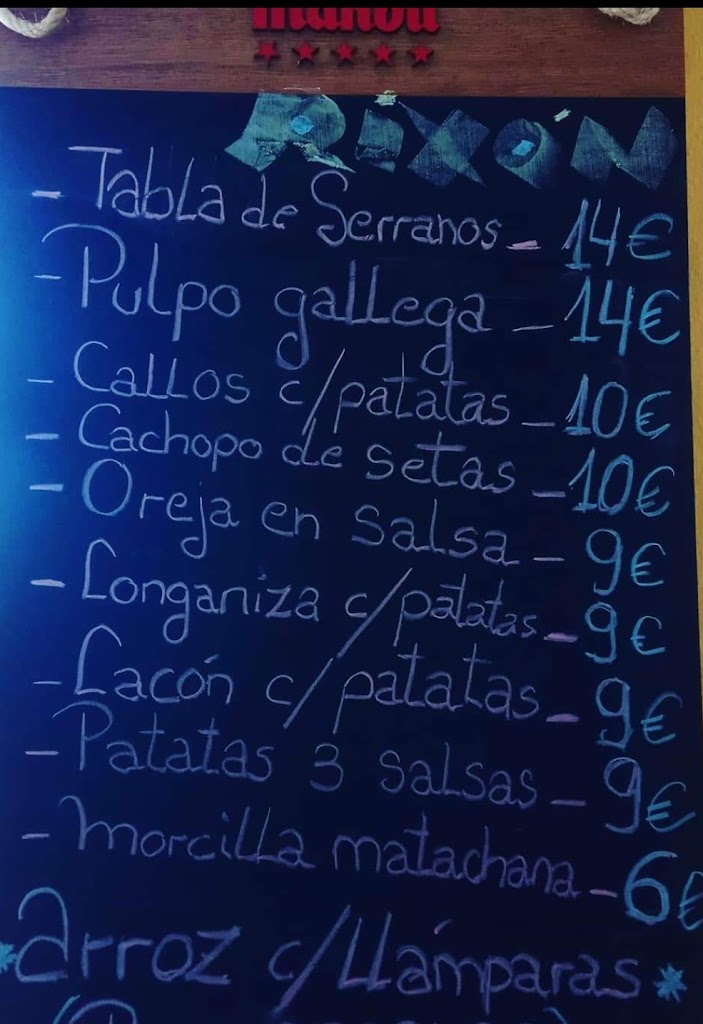 mahou
RIXÓN
- Tabla de Serranos - 14€
- Pulpo gallega - 14€
- Callos c/patatas - 10€
- Cachopo de setas - 10€
- Oreja en salsa - 9€
- Longaniza c/patatas - 9€
- Lacón c/patatas - 9€
- Patatas 3 salsas - 9€
- Morcilla matachana - 6€
* Arroz c/LLámparas *